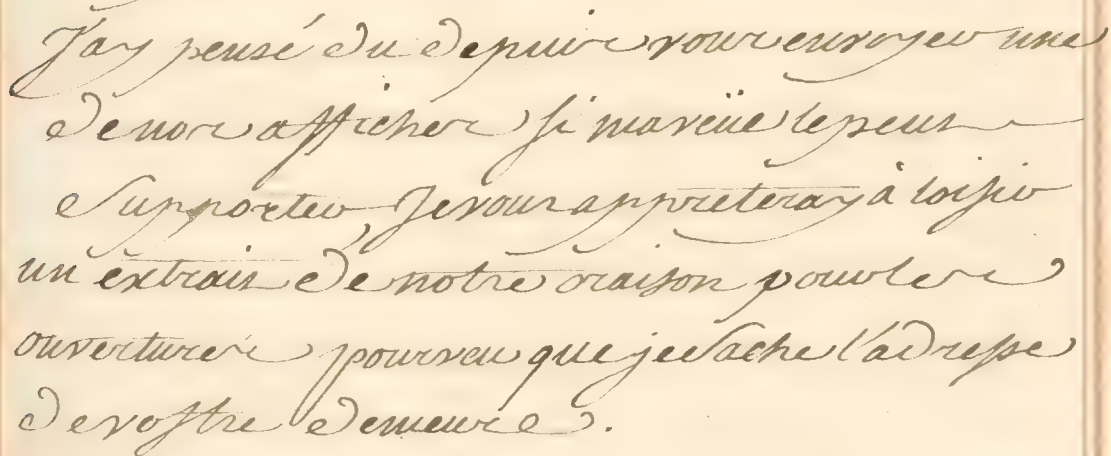 J'ay pensé du depuis vous envoyer une
de nos affiches si ma veüe le peut
supporter, Je vous appreteray à loisir
un extrait de notre oraison pour les
ouvertures pourveu que je sache l'adresse
de vostre demeure.